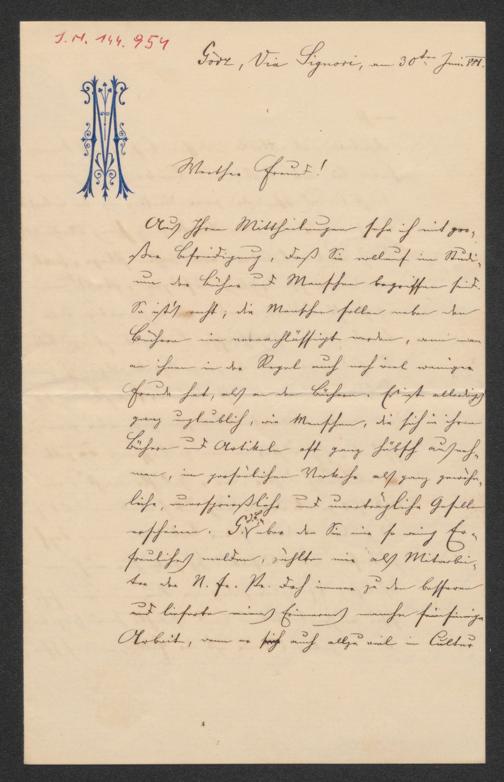 I.N. 144.954
Görz, Via Signori, am 30ten Juni
M
Werther Freund!
Aus Ihren Mittheilungen sehe ich mit gro-
ßer Befriedigung, daß Sie vollauf im Studi-
um der Bücher und Menschen begriffen sind.
So ist's recht; die Menschen sollen neben den
Büchern nie vernachlässigt werden, wenn man
an ihnen in der Regel auch noch viel weniger
Freude hat, als an den Büchern. Es ist allerdings
ganz unglaublich, wie Menschen, die sich in ihren
Büchern und Artikeln oft ganz hübsch ausneh-
men, im persönlichen Verkehr als ganz gewöhn-
liche, unersprießliche und unerträgliche Gesellen
erscheinen. über den Sie mir so wenig Er-
freuliches melden, zählte mir als Mitarbei-
ter der N. Fr. Pr. doch immer zu den besseren
und lieferte meines Erinnerns manche feinsinnige
Arbeit, wenn er auch allzu viel in Cultur